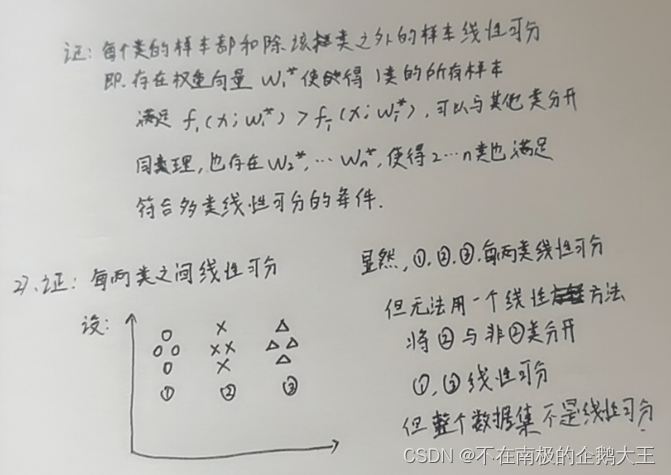 证: 每个类的样本都和除该类之外的样本线性可分
即存在权重向量 W₁* 使得 1类的所有样本
满足 f₁(x; w₁*) > fᵢ(x; wᵢ*), 可以与其他类分开
同理, 也存在 W₂*, … Wn*, 使得 2…n类也满足
符合多类线性可分的条件.
2). 证: 每两类之间线性可分
设:
① ② ③
显然, ①.②.③.每两类线性可分
但无法用一个线性方法
将②与非②类分开
①,③线性可分
但整个数据集不是线性可分
CSDN @不在南极的企鹅大王